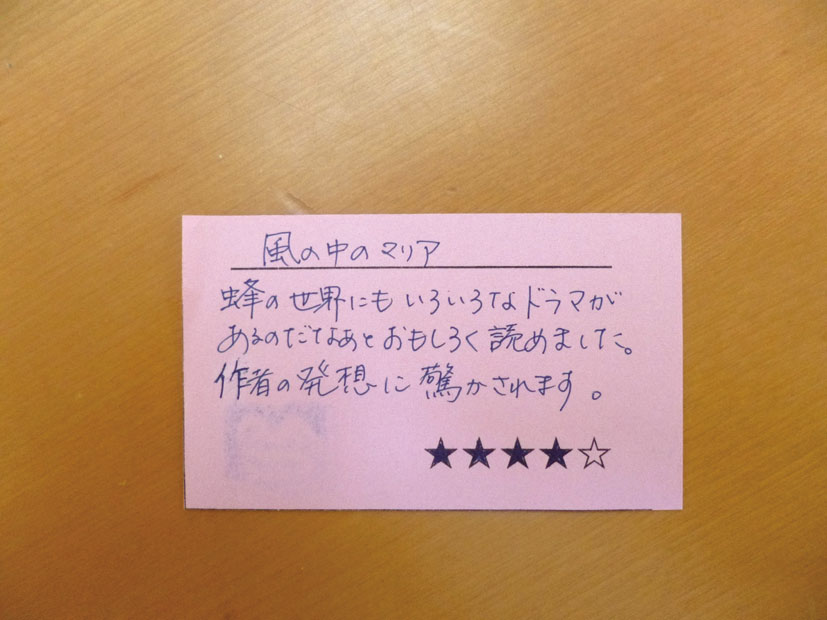 風の中のマリア
蜂の世界にもいろいろなドラマが
あるのだなあとおもしろく読めました。
作者の発想に驚かされます。
★★★★☆